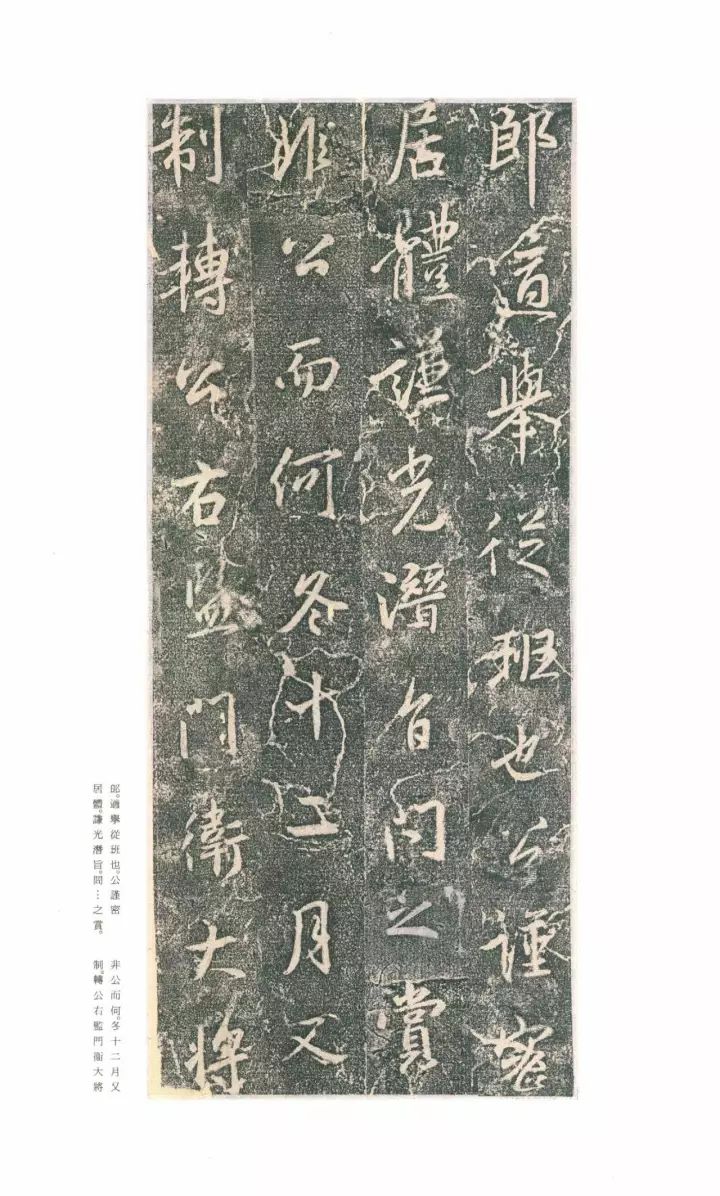 郎適舉從班也公謹密
居體謙光潛旨問之賞
非公而何冬十二月又
制轉公右監門衛大將
郎。適舉從班也。公謹密
居體。謙光潛旨。問…之賞。
非公而何。冬十二月又
制。轉公右監門衞大將